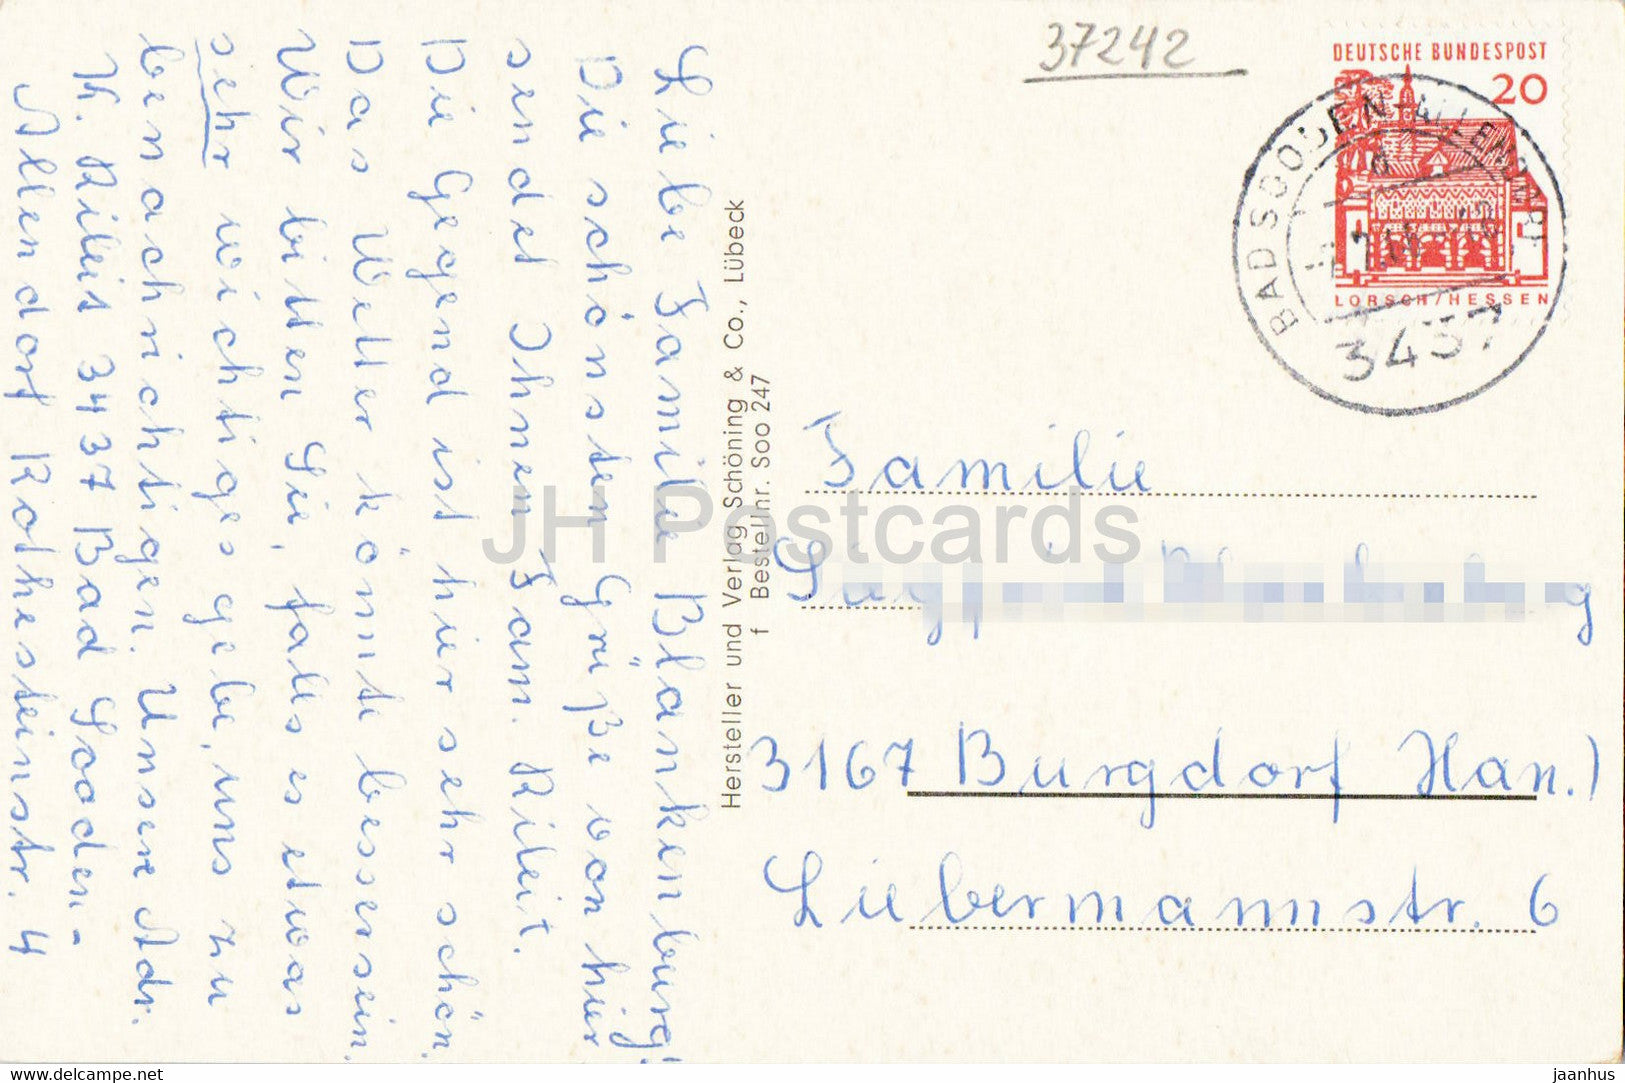 37242
DEUTSCHE BUNDESPOST
20
LORSCH/HESSEN
BAD SOODEN-ALLENDORF
d
3437
Liebe Familie Blankenburg!
Die schönsten Grüße von hier
sendet Ihnen Fam. Rileit.
Die Gegend ist hier sehr schön.
Das Wetter könnte besser sein.
Wir bitten Sie, falls es etwas
sehr wichtiges gebe, uns zu
benachrichtigen. Unsere Adr.
K. Rileit 3437 Bad Sooden-
Allendorf Rothesteinstr. 4
Hersteller und Verlag Schöning & Co., Lübeck
f Bestellnr. Soo 247
JH Postcards
Familie
3167 Burgdorf Han.)
Liebermannstr. 6
www.delcampe.net
jaanhus